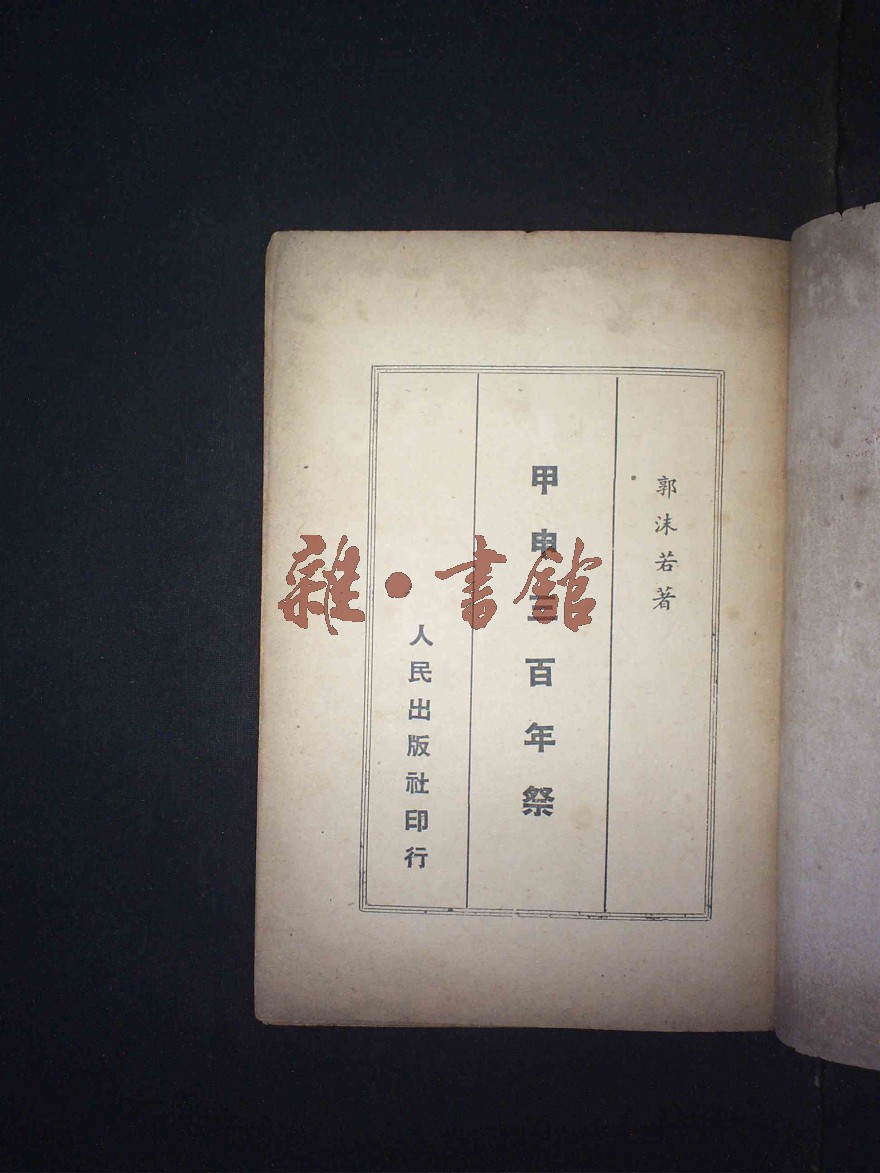 郭沫若著
甲申三百年祭
人民出版社印行
雜·書館